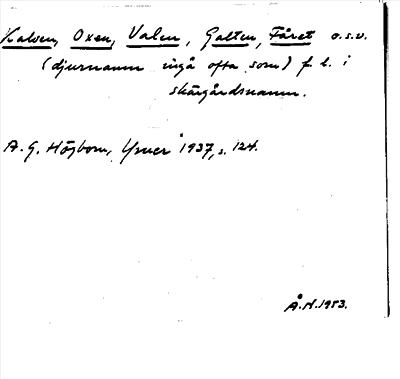 Kalven, Oxen, Valen, Galten, Fåret o.s.v.
(djurnamn ingå ofta som) f. l. i
skärgårdsnamn.
A. G. Högbom, Ymer 1937, s. 124.
Å.H. 1953.